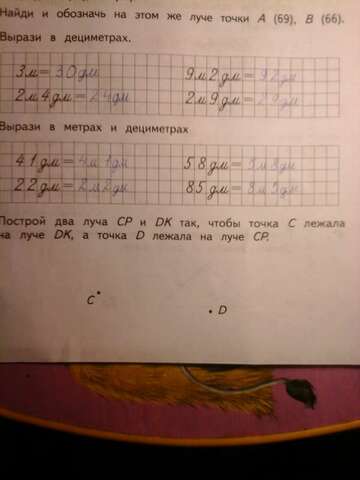 Найди и обозначь на этом же луче точки A (69), B (66).
Вырази в дециметрах.
3м=30дм 9м2дм=92дм
2м4дм=24дм 2м9дм=29дм
Вырази в метрах и дециметрах
41дм=4м1дм 58дм=5м8дм
22дм=2м2дм 85дм=8м5дм
Построй два луча CP и DK так, чтобы точка C лежала
на луче DK, а точка D лежала на луче CP.
C
D